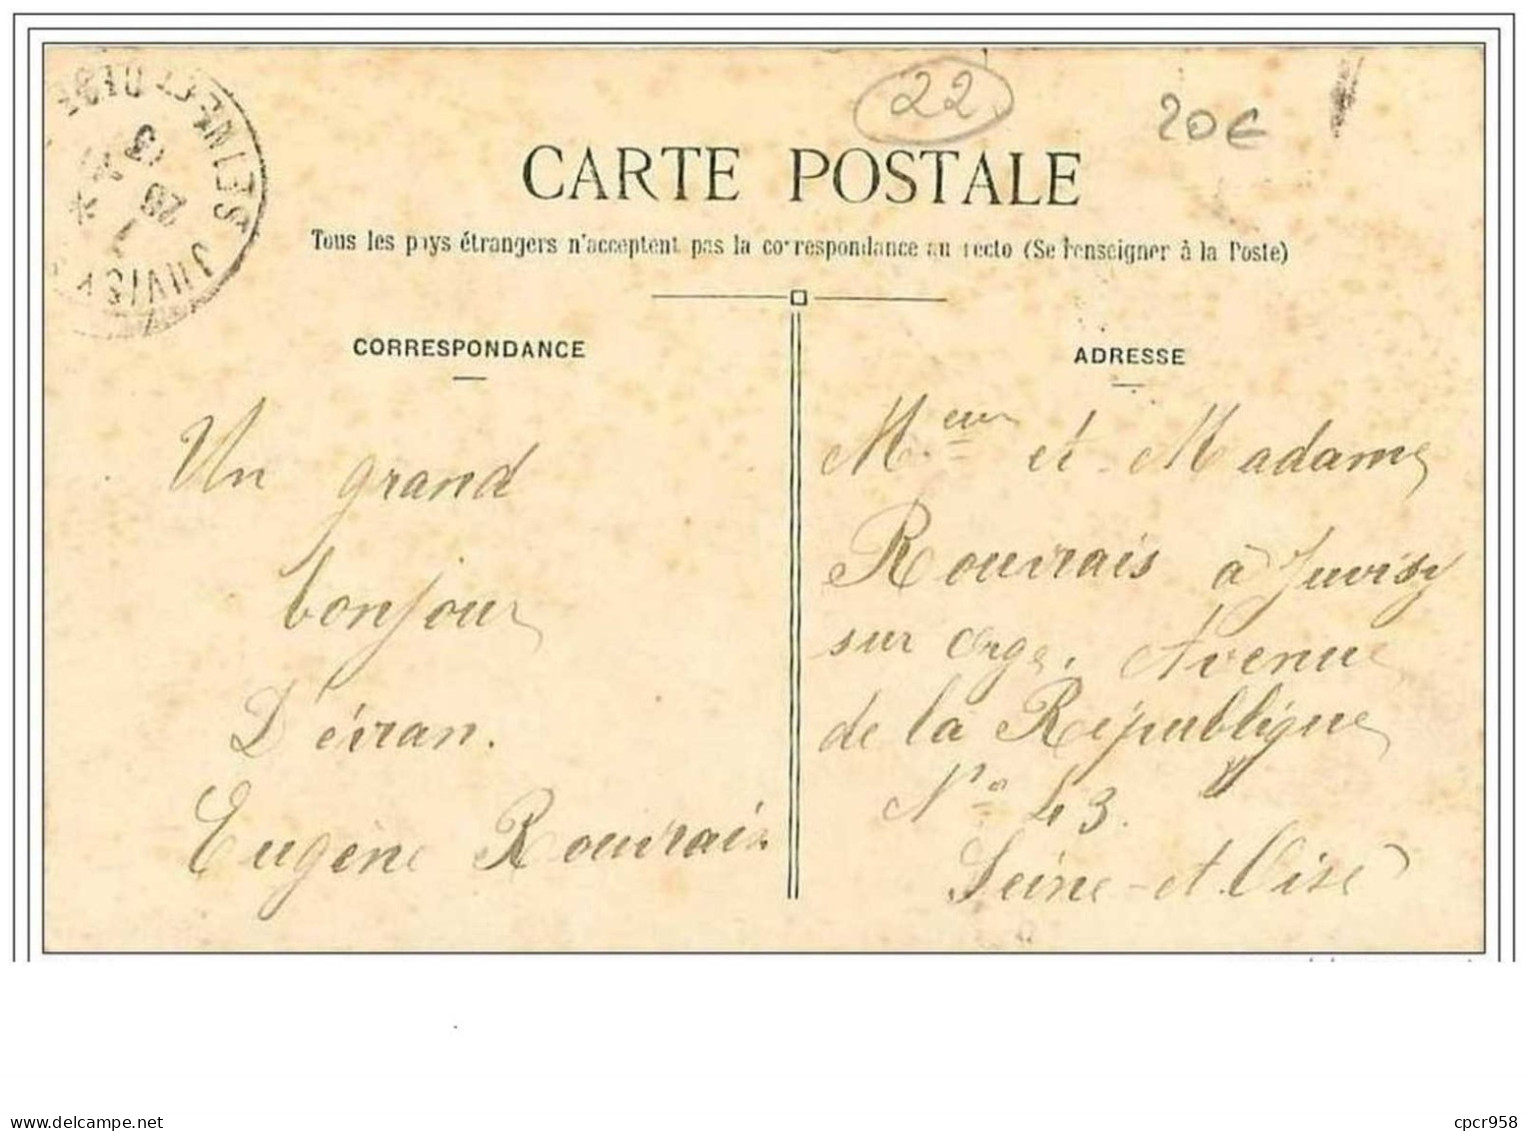 22
20€
CARTE POSTALE
Tous les pays étrangers n'acceptent pas la correspondance au recto (Se renseigner à la Poste)
JUVISY
SEINE-ET-OISE
CORRESPONDANCE
Un grand
bonjour
D'évran.
Eugène Rouvrais
ADRESSE
Meur et Madame
Rouvrais à Juvisy
sur Orge. Avenue
de la République
No 43.
Seine-et-Oise
cpcr958